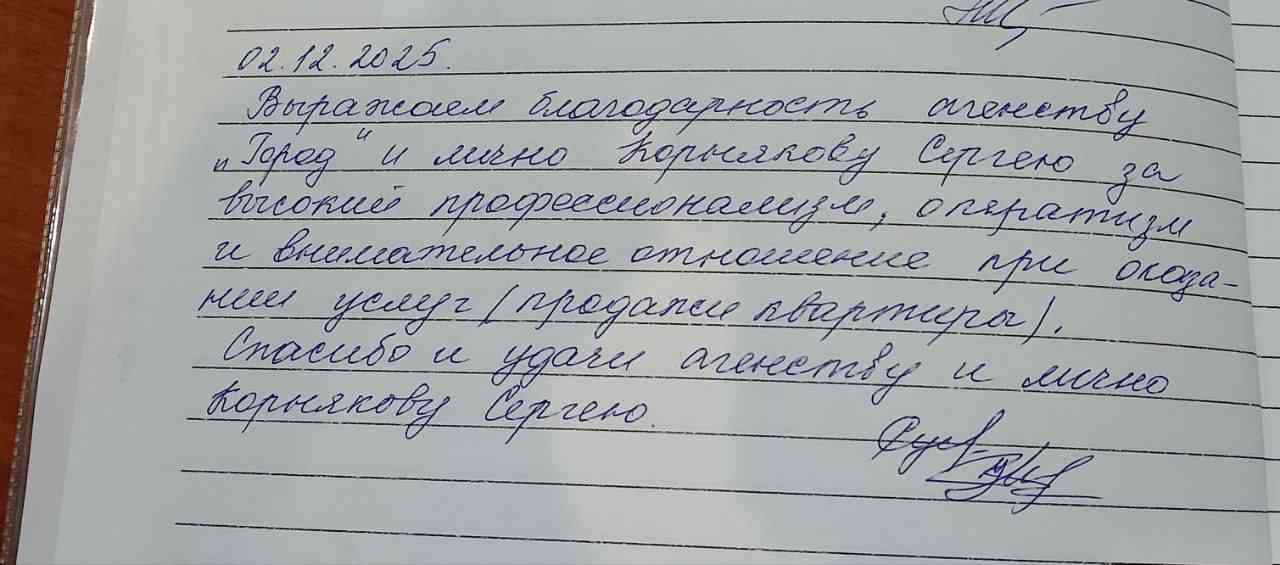 02.12.2025.
Выражаем благодарность агенству
„Город“ и лично Корнякову Сергею за
высокий профессионализм, оператизм
и внимательное отношение при оказа-
нии услуг (продажи квартиры).
Спасибо и удачи агенству и лично
Корнякову Сергею.